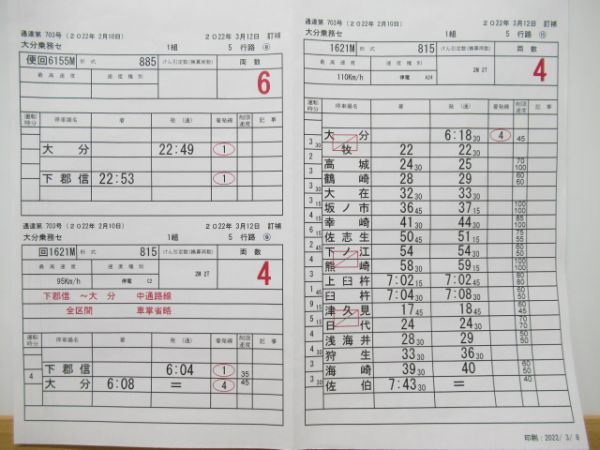 通達第 703号 (2022年 2月10日)
2022年 3月12日 訂補
大分乗務セ
1組
5 行路
便回6155M 形式 885 けん引定数(換算両数) 両数
最高速度 速度種別
6
運転時分 停車場名 着 発(通) 着発線 制限速度 記事
大分 22:49 1
下郡信 22:53 1
通達第 703号 (2022年 2月10日)
2022年 3月12日 訂補
大分乗務セ
1組
5 行路
回1621M 形式 815 けん引定数(換算両数) 両数
最高速度 速度種別 2M 2T
4
95Km/h 停電 C2
下郡信 ~大分 中通路線
全区間 車掌省略
運転時分 停車場名 着 発(通) 着発線 制限速度 記事
下郡信 6:04 1 35
4 大分 6:08 = 4 45
通達第 703号 (2022年 2月10日)
2022年 3月12日 訂補
大分乗務セ
1組
5 行路
1621M 形式 815 けん引定数(換算両数) 両数
最高速度 速度種別 2M 2T
4
110Km/h 停電 A24
運転時分 停車場名 着 発(通) 着発線 制限速度 記事
大分 6:18 30 4 45
牧 22 22 30
高城 24 30 25
鶴崎 28 30 29
大在 32 30 33 30
坂ノ市 36 45 37 15
幸崎 41 30 44 30
佐志生 50 45 51 15
下ノ江 54 54 30
熊崎 58 30 59 15
上臼杵 7:02 7:02 45
臼杵 7:04 30 7:08 30
津久見 17 45 18 45
日代 24 24 30
浅海井 28 30 29
狩生 33 30 36 30
海崎 39 30 40
佐伯 7:43 30 =
印刷:2022/ 3/ 9